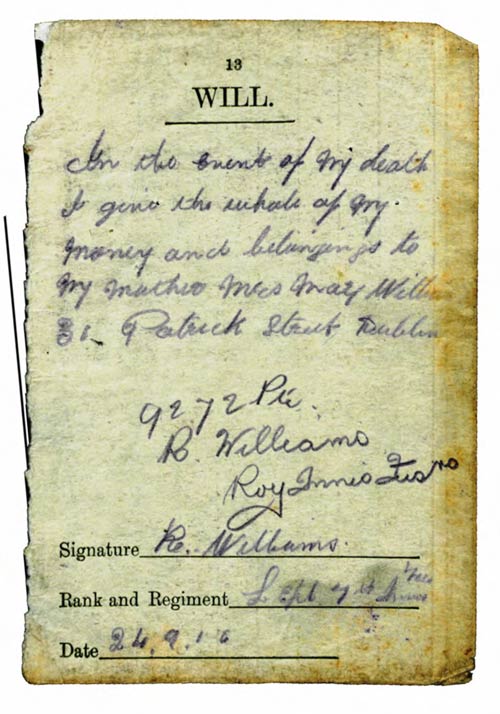 13
WILL.
In the event of my death
I give the whole of my
money and belongings to
my mother Mrs Mary Willi
31 Patrick Street Dublin
9272 Pte.
R. Williams
Roy Innis Fusrs
Signature R. Williams.
Rank and Regiment L cpl 7th Innis
Date 24.9.16